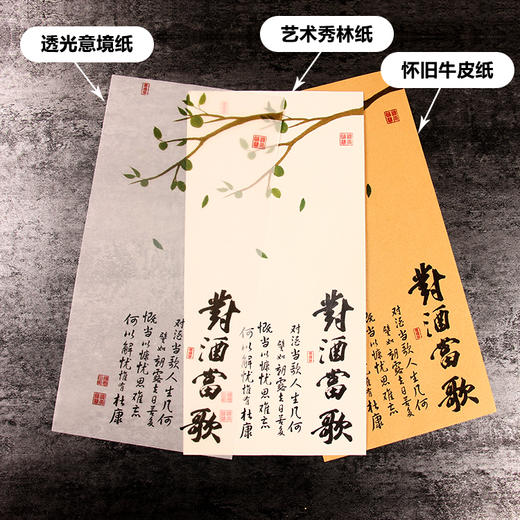 透光意境纸
艺术秀林纸
怀旧牛皮纸
對酒當歌
对酒当歌人生几何
譬如朝露去日苦多
慨当以慷忧思难忘
何以解忧惟有杜康
對酒當歌
对酒当歌人生几何
譬如朝露去日苦多
慨当以慷忧思难忘
何以解忧惟有杜康
對酒當歌
对酒当歌人生几何
譬如朝露去日苦多
慨当以慷忧思难忘
何以解忧惟有杜康